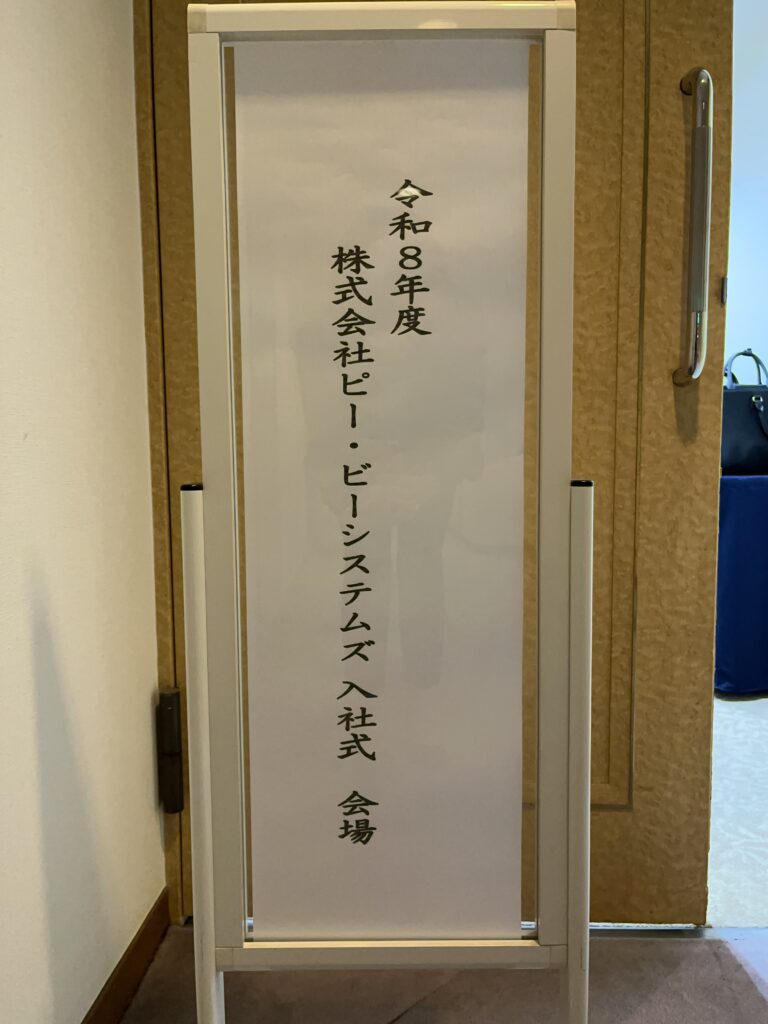 令和８年度
株式会社ピー・ビーシステムズ 入社式　会場